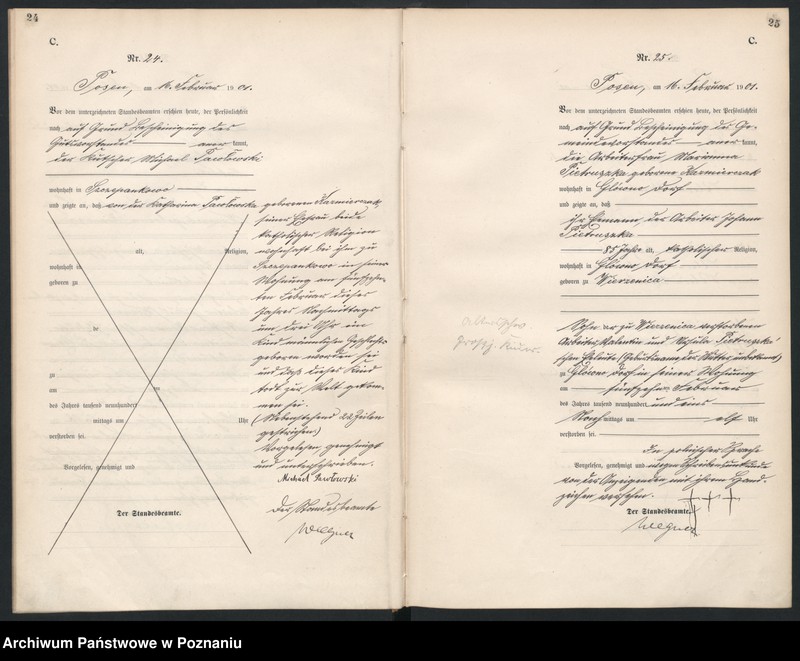 24
C.
Nr. 24.
Posen, am 16. Februar 1901.
Vor dem unterzeichneten Standesbeamten erschien heute, der Persönlichkeit
nach auf Grund Bescheinigung des
Gutsvorstandes anerkannt,
der Kutscher Michael Pawlowski
wohnhaft in Szczepankowo
und zeigte an, daß von der Katharina Pawlowska
geborenen Kazmierczak
seiner Ehefrau beide
katholischer Religion
wohnhaft bei ihm zu
Szczepankowo in seiner
Wohnung am fünfzehn-
ten Februar dieses
Jahres Nachmittags
um drei Uhr ein
Kind männlichen Geschlechts
geboren worden sei
und daß dieses Kind
todt zur Welt gekom-
men sei.
(Nebenstehend 22 Zeilen
gestrichen.)
Vorgelesen, genehmigt
und unterschrieben.
Michael Pawlowski
Der Standesbeamte
Wegner
alt, Religion,
wohnhaft in
geboren zu
de
zu
am ten
des Jahres tausend neunhundert
mittags um Uhr
verstorben sei.
Vorgelesen, genehmigt und
Der Standesbeamte.
25
C.
Nr. 25.
Posen, am 16. Februar 1901.
Vor dem unterzeichneten Standesbeamten erschien heute, der Persönlichkeit
nach auf Grund Bescheinigung des Ge-
meindevorstandes anerkannt,
die Arbeiterfrau Marianna
Pietrzak geborene Kazmierczak
wohnhaft in Glowno Dorf
und zeigte an, daß
ihr Ehemann, der Arbeiter Johann
85 Jahre alt, katholischer Religion,
wohnhaft in Glowno Dorf
geboren zu Wierzenica
Sohn der zu Wierzenica verstorbenen
Arbeiter Valentin und Ursula
schen Eheleute (Geburtsname der Mutter unbekannt)
zu Glowno Dorf in seiner Wohnung
am fünfzehnten Februar
des Jahres tausend neunhundert und eins
Nachmittags um elf Uhr
verstorben sei.
In polnischer Sprache
Vorgelesen, genehmigt und wegen Schreibensunkunde
von der Anzeigenden mit ihrem Hand-
zeichen versehen.
+++
Der Standesbeamte.
Wegner
Archiwum Państwowe w Poznaniu